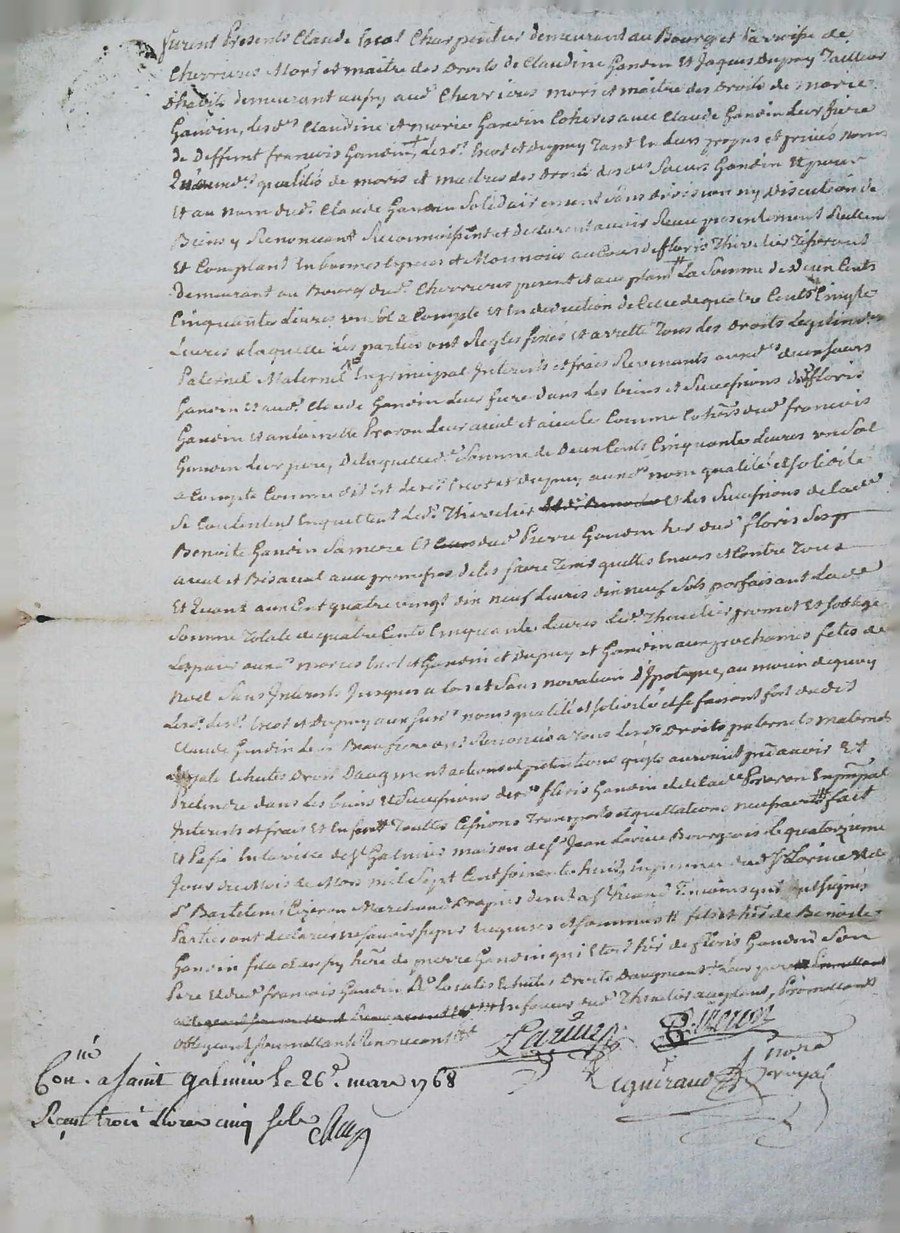 furent Presents Claude Escot Charpentier demeurant au Bourg et Parroisse de
Chevrieres Mary et maitre des Droits de Claudine Gandin Et Jaques Dupuy Tailleur
d'habits demeurant aussy aud. Chevrieres mary et maitre des Droits de marie
Gandin, lesd.es Claudine et marie Gandin Coherés avec Claude Gandin Leur frere
de Deffunt francois Gandin, Lesd. Escot et Dupuy Tant En Leurs propres et privés noms
qualités de maris et maitres des Droits desd.es Soeurs Gandin Et pour
Et au nom dud. Claude Gandin Solidairement Sans division ny discution de
Biens y Renoncant Reconnoissent et declarent avoir Receu presentement Reellem
Et Comptant En bonnes Especes et Monnoie au Cours de floris Thevelier
demeurant au Bourg dud. Chevrieres present et acceptant La Somme de Deux Cents
Cinquante Livres un Sol a Compte et En deduction de Celle de quatre Cents Cinq.te
Livres a laquelle Les parties ont Reglés fixés et arretté Tous les Droits Legitimes
Paternel Maternel En principal Interets et frais Revenants auxd. deux Soeurs
Gandin Et aud. Claude Gandin Leur frere dans les biens et Successions de floris
Gandin Et antoinette Leur ayeul et aieule Comme Coherés dud. francois
Gandin Leur pere, De laquelle d. Somme de Deux Cents Cinquante Livres un Sol
a Compte Comme dit Est Lesd. Escot et Dupuy auxd. nom qualité et solidité
Se Contentent En quittent Led. Thevelier Et les Successions de lad.e
Benoite Gandin Sa mere Et dud. Pierre Gandin her. dud. floris Ses
ayeul et Bisayeul aux promesses de les faire Tenir quittes Envers et Contre Tous
Et Quant aux Cent quatre vingt dix neuf Livres dix neuf Sols parfaisant Lad.e
Somme Totale de quatre Cents Cinquante Livres Led. Thevelier promet Et soblige
Les payer auxd. maries Escot et Gandin et Dupuy et Gandin aux prochaines fetes de
Noel Sans Interets Jusques a lors et Sans novation d'Ipoteque, au moien de quoy
Lesd. Escot et Dupuy auxd. noms qualité et solidité et se faisant fort dudit
Claude Gandin Leur Beaufrere ont Renoncés a Tous lesd. Droits paternels maternels
Droit Daugment actions et petentions quils auroient pû avoir Et
Pretendre dans Les biens et Successions desd. floris Gandin et de lad.e En principal
Interets et frais Et En font Touttes Cessions Transports et quittations necessaires fait
Et Passé En la ville de St Galmier maison de sr Jean Larive Bourgeois Le quatorzieme
Jour du Mois de Mars mil Sept Cent Soixante huit, En presence dud. Sr Larive Et de
Sr Bartelemi Eyzeron Marchand Drapier dem.t a St Temoins qui ont signés
Parties ont declarées ne scavoir signer requises et sommées fils et her. de Benoite
Gandin fille et aussy her. de pierre Gandin qui Etoit her. de floris Gandin Son
Pere Et dud. francois Gandin Droits Daugment
En faveur dud. Thevelier acceptant, Promettant
obligeant soumettant Renoncant
Larive
nore royal
Con.lé a Saint Galmier le 26e. mars 1768
Reçu trois Livres cinq sols